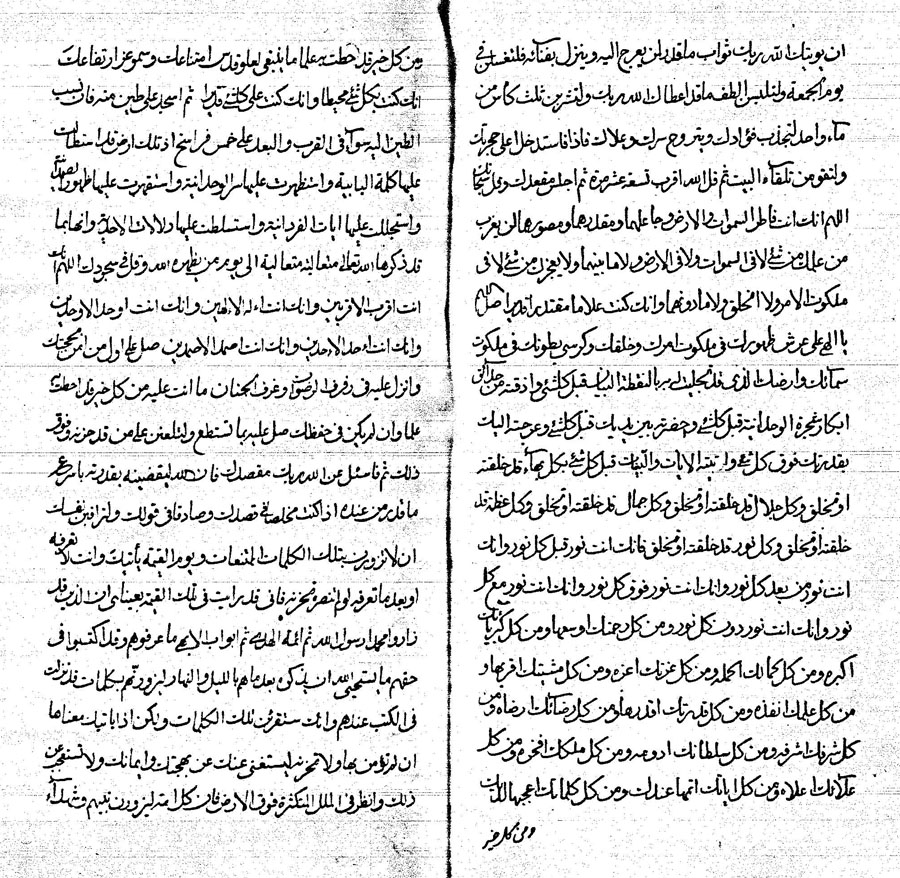 ان يوتيك الله ربك ثواب ما قدر لمن يعرج اليه وينزل بفنائه فلتغتسلن في
يوم الجمعة ولتلبس الطف ما قد اعطاك الله ربك ولتشربن ثلث كاس من
ماء واحد لتجذب فؤادك ويتروح سرك وعلانيتك فاذا فاستدخل على حجرتك
ولتقومن تلقاء البيت ثم قل الله اقرب تسعة عشر مرة ثم اجلس مقعدك وقل سبحانك
اللهم انك انت فاطر السموات والارض وجاعلهما ومقدرهما ومصورهما لن يعزب
من علمك من شئ لا في السموات ولا في الارض ولا ما بينهما ولا يعجزك من شئ لا في
ملكوت الامر ولا الخلق ولا ما دونهما وانك كنت علاما مقتدرا قديرا صل اللهم
يا الهي على عرش ظهورك في ملكوت امرك وخلقك وكرسي بطونك في ملكوت
سمائك وارضك الذي قد تجليت له به بالنقطة البيان قبل كلشئ واذقته من
ابكار شجرة الوحدانية قبل كلشئ وحضرته بين يديك قبل كلشئ وعرجته اليك
بقدرتك فوق كل شئ واتيته الايات والبينات قبل كل شئ بكل بهاء قد خلقته
او تخلق وكل جلال قد خلقته او تخلق وكل جمال قد خلقته او تخلق وكل عظمة قد
خلقته او تخلق وكل نور قد خلقته او تخلق فانك انت نور قبل كل نور وانك
انت نور من بعد كل نور وانك انت نور فوق كل نور وانك انت نور مع كل
نور وانك انت نور دون كل نور ومن كل رحمتك اوسعها ومن كل كبريائك
اكبره ومن كل كمالك اكمله ومن كل عزتك اعزه ومن كل مشيتك اقربها و
من كل علمك انفذه ومن كل قدرتك اقدرها ومن كل رضائك ارضاه ومن
كل شرفك اشرفه ومن كل سلطانك ادومه ومن كل ملكك افخره ومن كل
علائك اعلاه ومن كل اياتك اتمها عندك ومن كل كلماتك اعجبها لديك
ومن كل خير
ومن كل خير قد احطت به علما ما ينبغي لعلو قدس امتناعك وسمو عز ارتفاعك
انك كنت بكل شئ محيطا وانك كنت على كلشئ قديرا ثم اسجد على طين من فان نسب
الطين اليه سواء في القرب والبعد على خمس فراسخ اذ تلك ارض قد استطالت
عليها كلمة البابية واستظهرت عليها سر الوحدانية واستقهرت عليها ظهور الصمدانية
واستجللت عليها ايات الفردانية واستسلطت عليها دلالات الاحدية وانها ما
قد ذكرها الله متعالية متعالية الى يوم من يظهره الله وقل في سجودك اللهم انك
انت اقرب الاقربين وانك انت اله الالهين وانك انت اوحد الاوحدين
وانك انت احد الاحدين وانك انت اصمد الاصمدين صل على اول من امن بحجتك
وانزل عليه في رفرف الرضوان وغرف الجنان ما انت عليه من كل خير قد احطت به
علما وان لم يكن في حفظك صل عليه بما تستطع ولتلعنن على من قد حزنه وفوق
ذلك ثم فاسئل عن الله ربك مقصدك فان الله ليقضينه بقدرته بامر عز
ما قدر من عنده اذا كنت مخلصا في قصدك وصادقا في قولك ولتراقبن نفسك
ان لا تزورن بتلك الكلمات الممتنعات ويوم القيمة يأتيك وانت لا تعرفه
او بعد ما تعرفه لو لم تنصره تحزنه فاني قد رايت في تلك القيمة بعيناي ان الذين قد
زاروا محمدا رسول الله ثم ائمة الهدى ثم ابواب الاهي ما عرفوهم وقد اكتسبوا في
حقهم ما يستحيى الله ان يذكره بعد ما هم بالليل والنهار ليزورنهم بكلمات قد نزلت
في الكتب عندهم وانك ستقرئن تلك الكلمات ولكن اذا ياتيك معناها
ان لم تؤمن بها ولا تحزنه ليستغنى عنك عن بهجتك وايمانك ولا تستعجبن عن
ذلك وانظر في الملل المتكثرة فوق الارض فان كل امة ليزورن نبيهم وشهداء